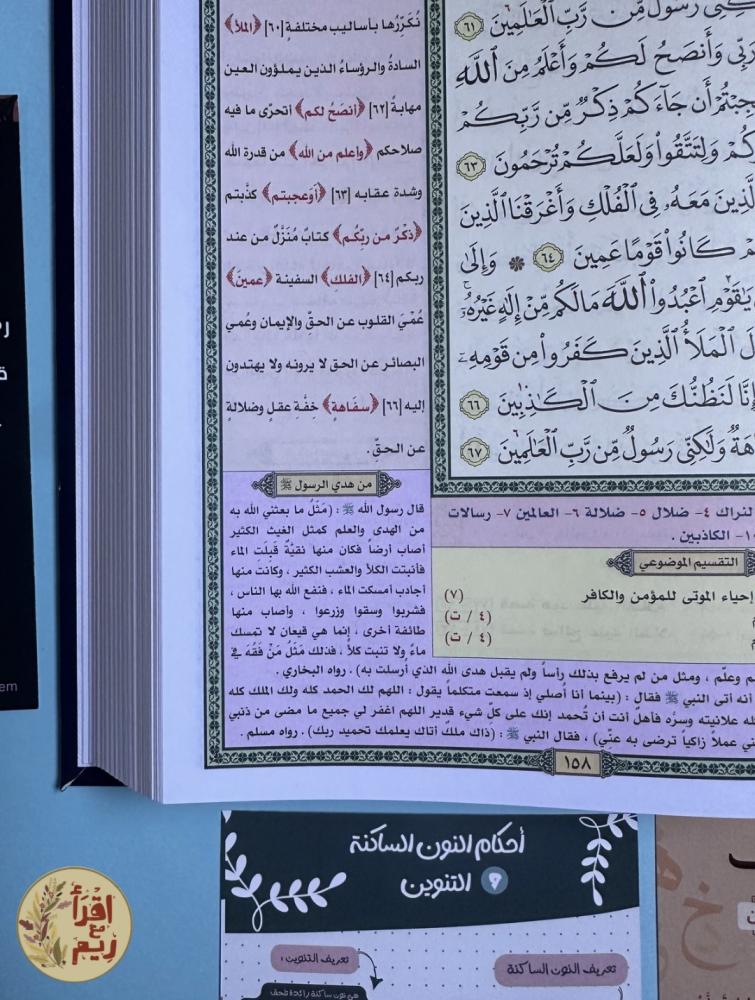 ـكِنِّى رَسُولٌ مِّن رَّبِّ ٱلْعَـٰلَمِينَ ٦١
رَبِّى وَأَنصَحُ لَكُمْ وَأَعْلَمُ مِنَ ٱللَّهِ
ـجِبْتُمْ أَن جَآءَكُمْ ذِكْرٌ مِّن رَّبِّكُمْ
ـكُمْ وَلِتَتَّقُوا۟ وَلَعَلَّكُمْ تُرْحَمُونَ ٦٣
ـلَّذِينَ مَعَهُۥ فِى ٱلْفُلْكِ وَأَغْرَقْنَا ٱلَّذِينَ
ـمْ كَانُوا۟ قَوْمًا عَمِينَ ٦٤ ۞ وَإِلَىٰ
يَـٰقَوْمِ ٱعْبُدُوا۟ ٱللَّهَ مَا لَكُم مِّنْ إِلَـٰهٍ غَيْرُهُۥٓ
ـلَ ٱلْمَلَأُ ٱلَّذِينَ كَفَرُوا۟ مِن قَوْمِهِۦٓ
إِنَّا لَنَظُنُّكَ مِنَ ٱلْكَـٰذِبِينَ ٦٦
ـهَةٌ وَلَـٰكِنِّى رَسُولٌ مِّن رَّبِّ ٱلْعَـٰلَمِينَ ٦٧
نُكَرِّرُها بأساليب مختلفةٍ [٦٠] ﴿الملأ﴾
السادةُ والرؤساءُ الذين يملؤون العين
مهابةً [٦٢] ﴿أنصحُ لكم﴾ أتحرّى ما فيه
صلاحكم ﴿وأعلم من الله﴾ من قدرة الله
وشدة عقابه [٦٣] ﴿أوعجبتم﴾ كذّبتم
﴿ذكرٌ من ربّكم﴾ كتابٌ مُنَزَّلٌ من عند
ربكم [٦٤] ﴿الفلكِ﴾ السفينة ﴿عمين﴾
عُمْيَ القلوب عن الحقِّ والإيمان وعُمي
البصائر عن الحق لا يرونه ولا يهتدون
إليه [٦٦] ﴿سفاهةٍ﴾ خِفَّةِ عقلٍ وضلالةٍ
عن الحقِّ .
من هدي الرسول ﷺ
قال رسول الله ﷺ : (مَثَلُ ما بعثني الله به
من الهدى والعلم كمثل الغيث الكثير
أصاب أرضاً فكان منها نقيّة قَبِلَتِ الماء
فأنبتت الكلأ والعشب الكثير ، وكانت منها
أجادب أمسكت الماء ، فنفع الله بها الناس ،
فشربوا وسقوا وزرعوا ، وأصاب منها
طائفة أخرى ، إنما هي قيعان لا تمسك
ماءً ولا تنبت كلأ ، فذلك مَثَلُ مَنْ فَقُهَ في
ـم وعلّم ، ومثل من لم يرفع بذلك رأساً ولم يقبل هدى الله الذي أرسلت به) . رواه البخاري .
أنه أتى النبي ﷺ فقال : (بينما أنا أصلي إذ سمعت متكلماً يقول : اللهم لك الحمد كله ولك الملك كله
ـله علانيته وسرّه فأهلٌ أنت أن تُحمد إنك على كلّ شيء قدير اللهم اغفر لي جميع ما مضى من ذنبي
ـني عملاً زاكياً ترضى به عنّي) ، فقال النبي ﷺ : (ذاك ملكٌ أتاك يعلمك تحميد ربك) . رواه مسلم .
لنراك ٤- ضلال ٥- ضلالة ٦- العالمين ٧- رسالات
١٠- الكاذبين .
التقسيم الموضوعي
إحياء الموتى للمؤمن والكافر (٧)
(٤ / ت)
(٤ / ت)
١٥٨
أحكام النون الساكنة
و التنوين
تعريف التنوين :
تعريف النون الساكنة
هي نون ساكنة زائدة تلحق
اقرأ
مع
ريم